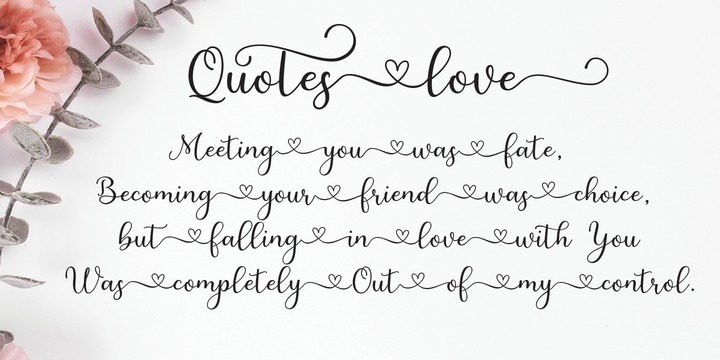 Quotes love
Meeting you was fate,
Becoming your friend was choice,
but falling in love with You
Was completely Out of my control.